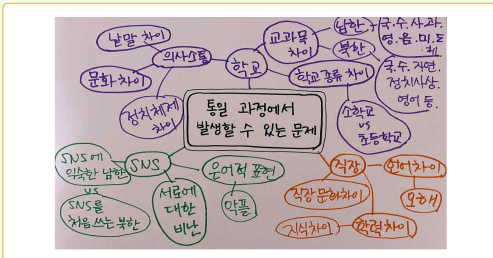 통일 과정에서
발생할 수 있는 문제
학교
의사소통
낱말 차이
문화 차이
정치체제
차이
교과목
차이
남한
국.수.사.과.
영.음.미.도
체
북한
국.수.자연.
정치사상.
영어 등.
학교 종류 차이
소학교
vs
초등학교
SNS
SNS에
익숙한 남한
vs
SNS를
처음 쓰는 북한
서로에
대한
비난
은어적 표현
악플
직장
언어차이
오해
직장 문화차이
학력차이
지식차이